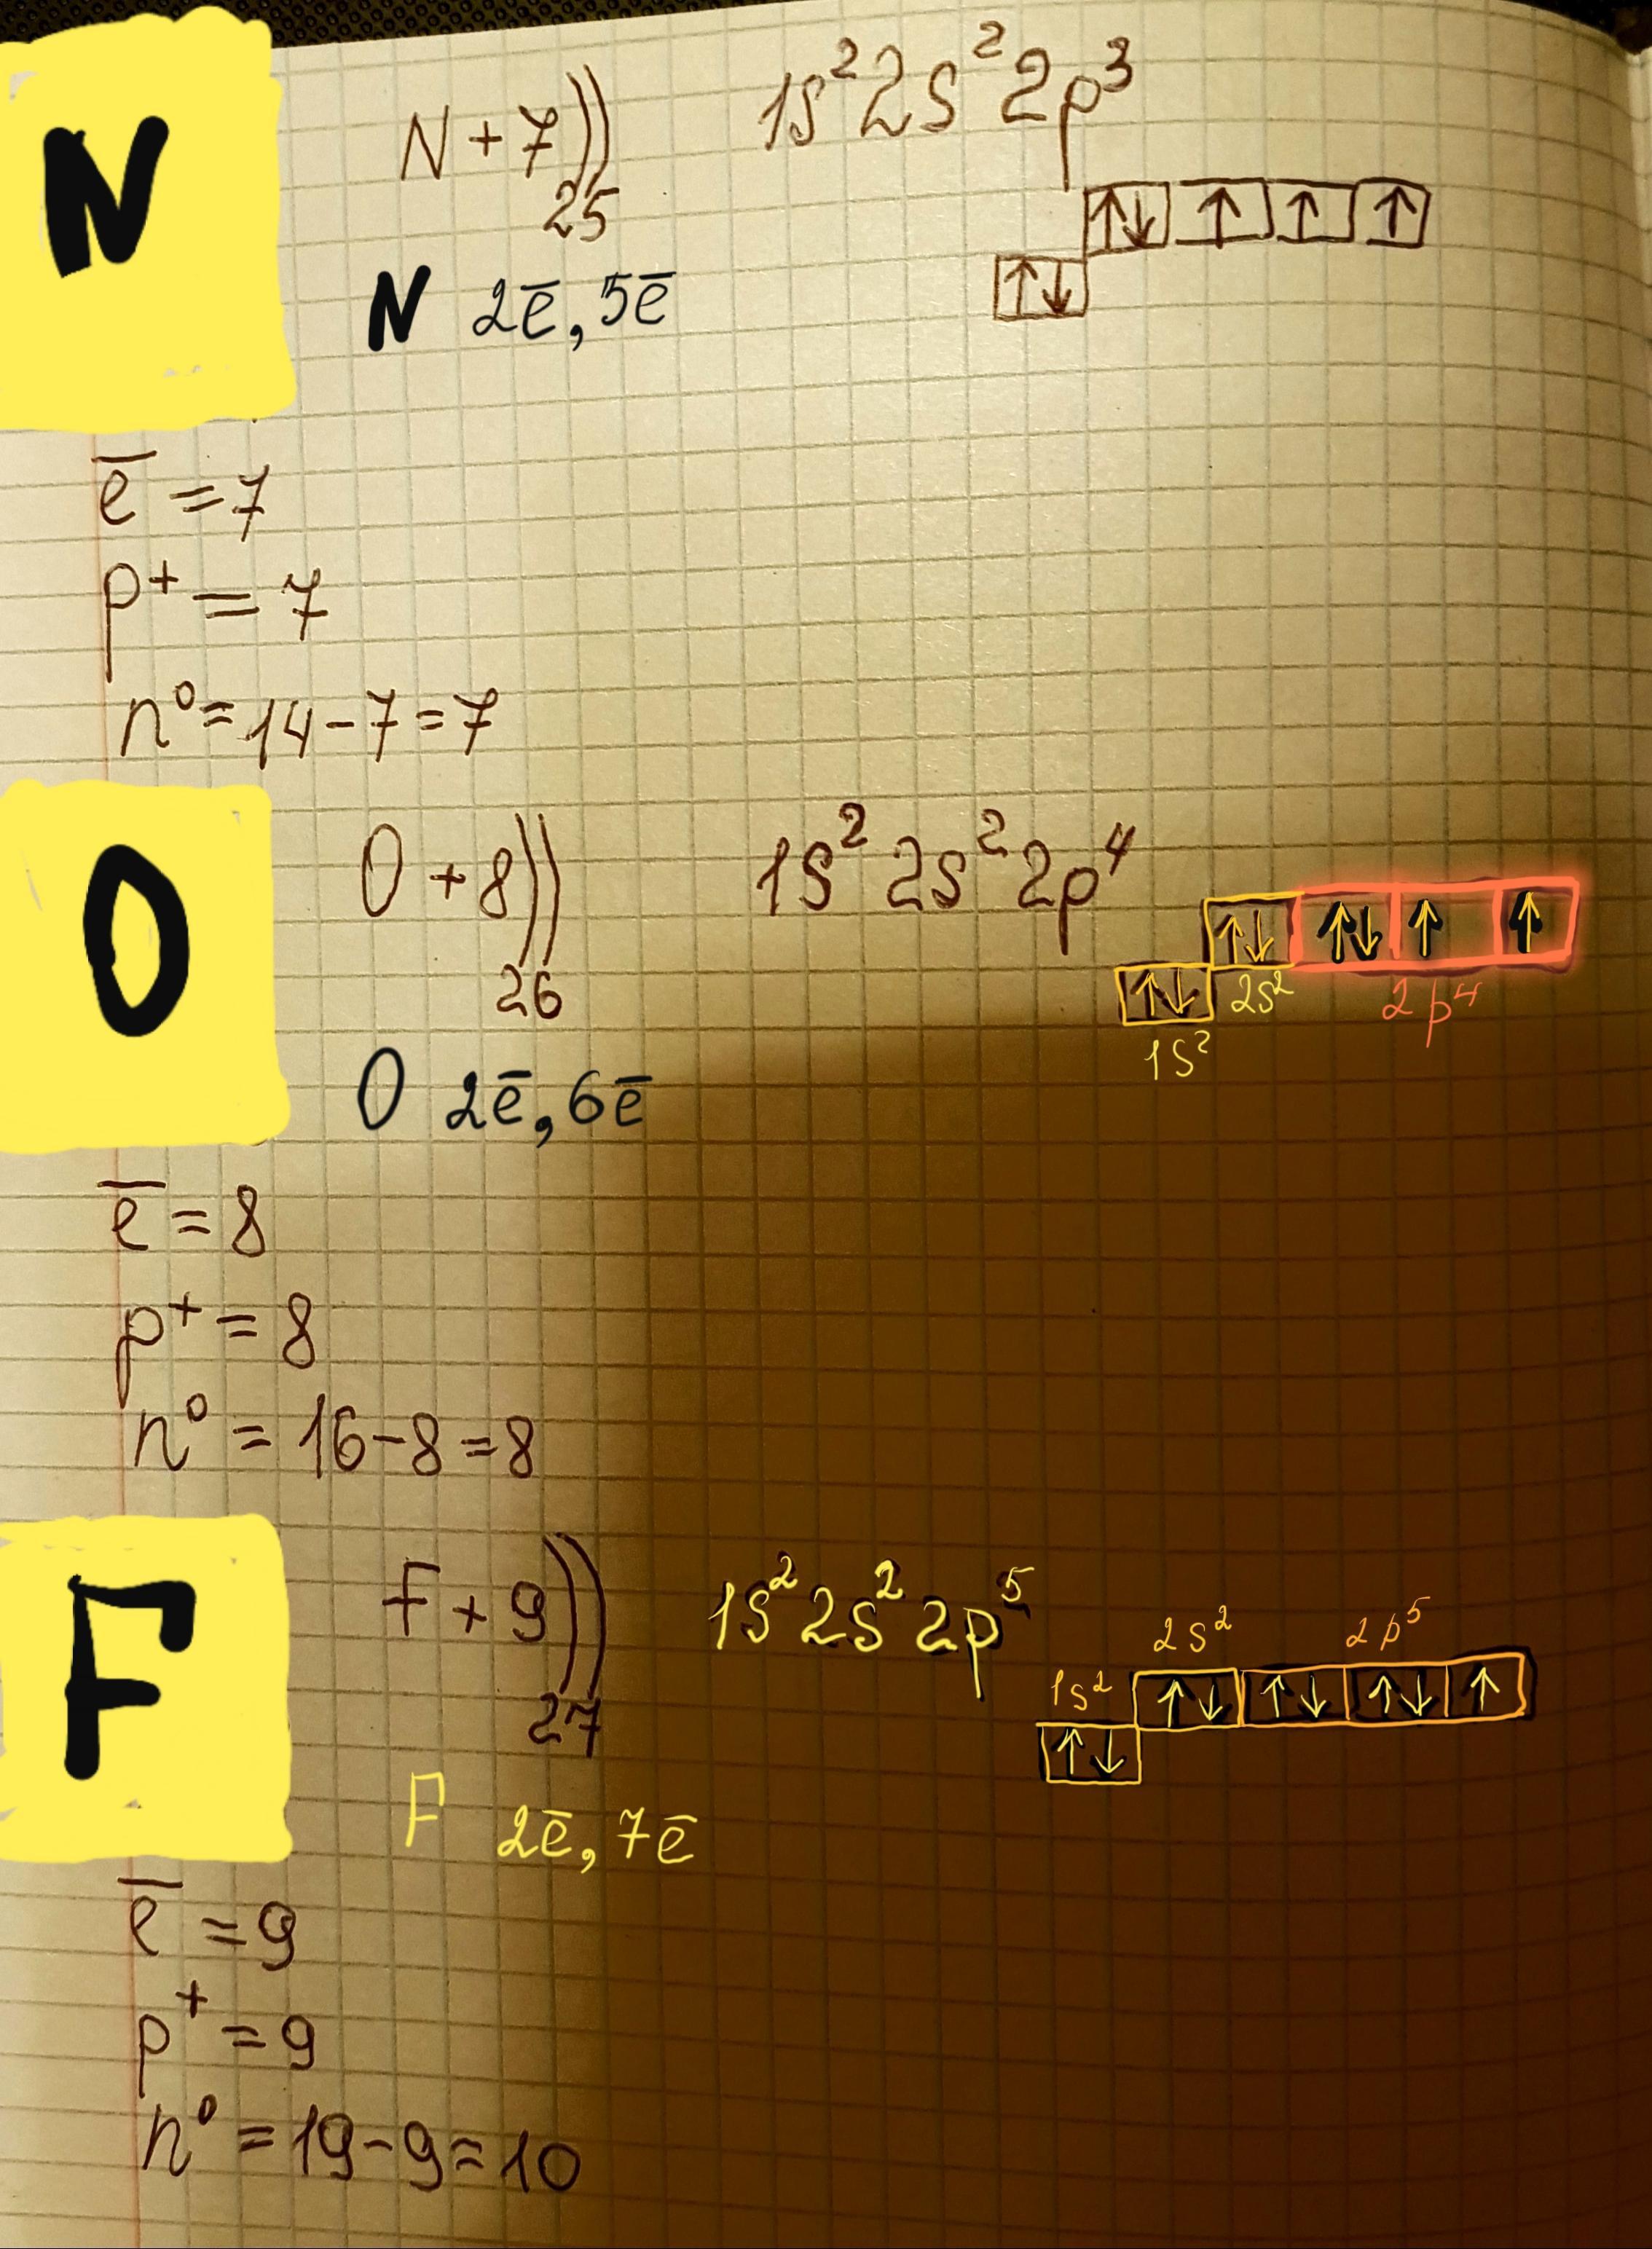 N
N + 7 ))
25
1s² 2s² 2p³
↑↓ ↑ ↑ ↑
↑↓
N 2ē, 5ē
ē = 7
p⁺ = 7
n⁰ = 14 - 7 = 7
O
O + 8 ))
26
1s² 2s² 2p⁴
↑↓ ↑↓ ↑ ↑
↑↓ 2s² 2p⁴
1s²
O 2ē, 6ē
ē = 8
p⁺ = 8
n⁰ = 16 - 8 = 8
F
F + 9 ))
27
1s² 2s² 2p⁵
2s² 2p⁵
1s² ↑↓ ↑↓ ↑↓ ↑
↑↓
F 2ē, 7ē
ē = 9
p⁺ = 9
n⁰ = 19 - 9 = 10